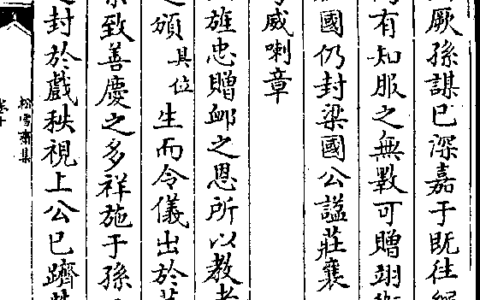 厥孫謀已深嘉于既往
有知服之無斁可贈翊
國仍封梁國公謚莊襄
威喇章
旌忠贈卹之恩所以教
頒具位生而令儀出於
致善慶之多祥施于孫
封於戲秩視上公已躋
松雪齋集
卷十